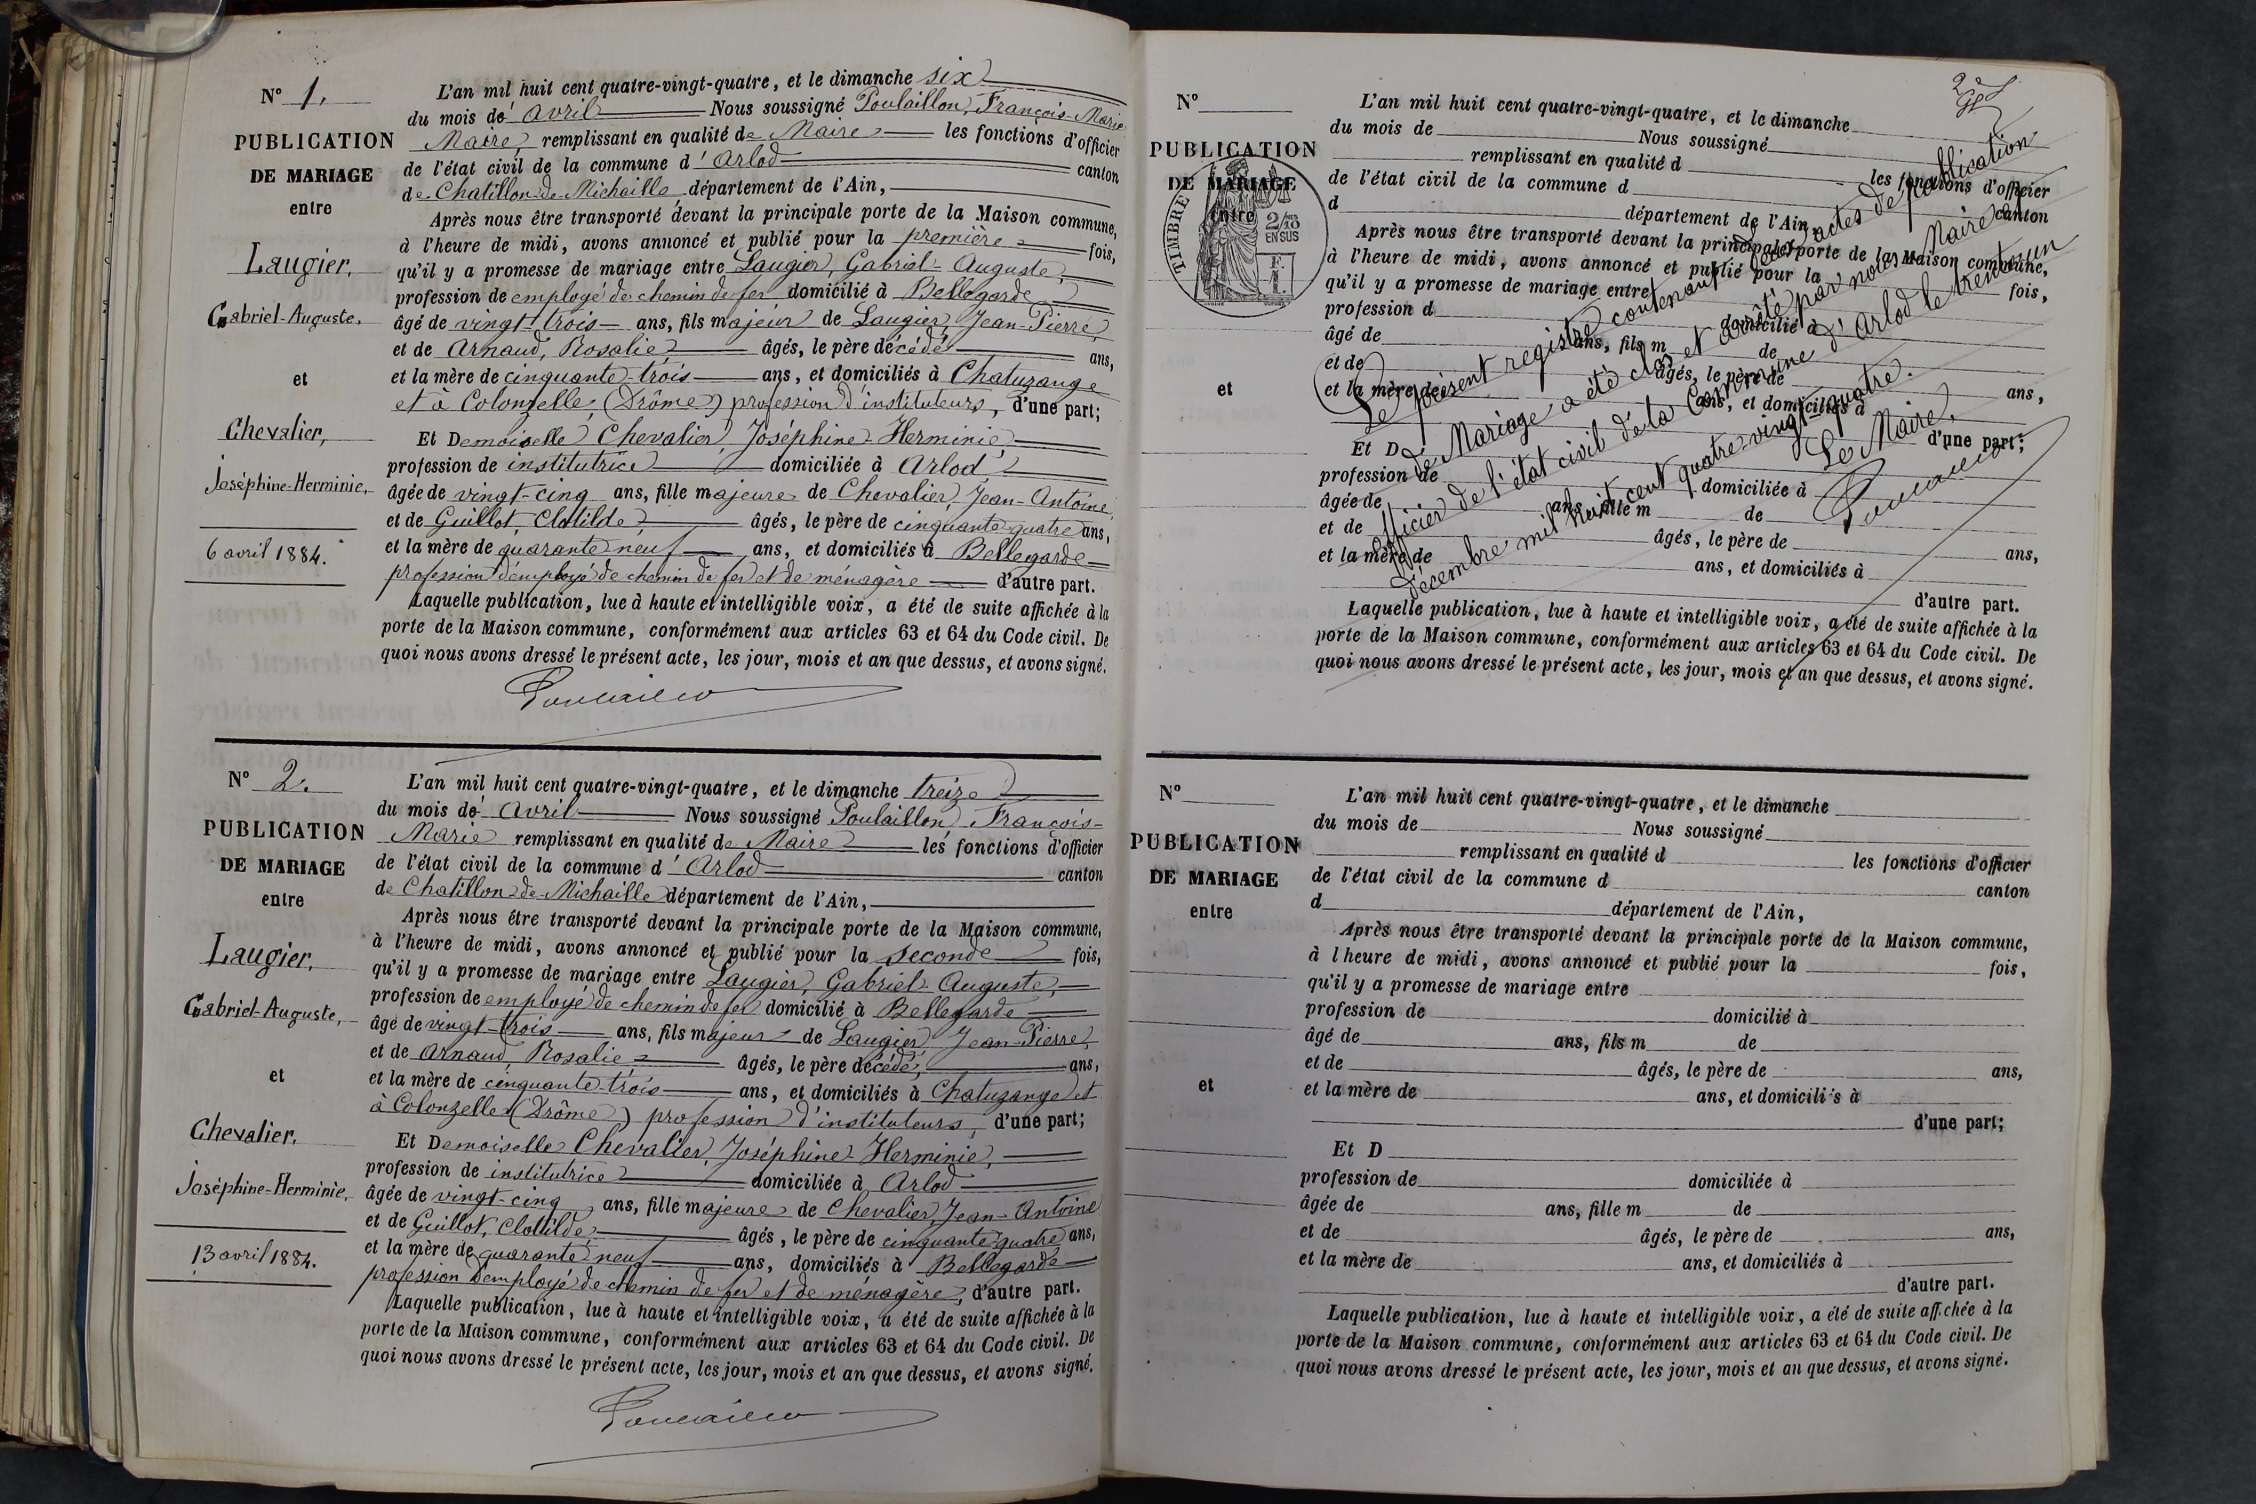 N° 1.
PUBLICATION
DE MARIAGE
entre
Laugier,
Gabriel-Auguste,
et
Chevalier,
Joséphine-Herminie,
6 avril 1884.
L'an mil huit cent quatre-vingt-quatre, et le dimanche six
du mois de avril Nous soussigné Poulaillon, François-Marie
Maire, remplissant en qualité de Maire les fonctions d'officier
de l'état civil de la commune d'Arlod canton
de Chatillon-de-Michaille département de l'Ain,
Après nous être transporté devant la principale porte de la Maison commune,
à l'heure de midi, avons annoncé et publié pour la première fois,
qu'il y a promesse de mariage entre Laugier, Gabriel-Auguste,
profession de employé de chemin de fer domicilié à Bellegarde
âgé de vingt-trois ans, fils majeur de Laugier, Jean-Pierre,
et de Arnaud, Rosalie âgés, le père décédé ans,
et la mère de cinquante-trois ans, et domiciliés à Chatuzange
et à Colonzelle, (Drôme) profession d'instituteurs, d'une part;
Et Demoiselle Chevalier, Joséphine-Herminie,
profession de institutrice domiciliée à Arlod
âgée de vingt-cinq ans, fille majeure de Chevalier, Jean-Antoine,
et de Guillot, Clotilde âgés, le père de cinquante-quatre ans,
et la mère de quarante-neuf ans, et domiciliés à Bellegarde
profession d'employé de chemin de fer et de ménagère d'autre part.
Laquelle publication, lue à haute et intelligible voix, a été de suite affichée à la
porte de la Maison commune, conformément aux articles 63 et 64 du Code civil. De
quoi nous avons dressé le présent acte, les jour, mois et an que dessus, et avons signé.
Poulaillon
N° 2.
PUBLICATION
DE MARIAGE
entre
Laugier,
Gabriel-Auguste,
et
Chevalier,
Joséphine-Herminie,
13 avril 1884.
L'an mil huit cent quatre-vingt-quatre, et le dimanche treize
du mois de avril Nous soussigné Poulaillon, François-
Marie remplissant en qualité de Maire les fonctions d'officier
de l'état civil de la commune d'Arlod canton
de Chatillon-de-Michaille département de l'Ain,
Après nous être transporté devant la principale porte de la Maison commune,
à l'heure de midi, avons annoncé et publié pour la seconde fois,
qu'il y a promesse de mariage entre Laugier, Gabriel-Auguste,
profession de employé de chemin de fer domicilié à Bellegarde
âgé de vingt-trois ans, fils majeur de Laugier, Jean-Pierre,
et de Arnaud, Rosalie âgés, le père décédé, ans,
et la mère de cinquante-trois ans, et domiciliés à Chatuzange et
à Colonzelle, (Drôme) profession d'instituteurs, d'une part;
Et Demoiselle Chevalier, Joséphine-Herminie,
profession de institutrice domiciliée à Arlod
âgée de vingt-cinq ans, fille majeure de Chevalier, Jean-Antoine
et de Guillot, Clotilde, âgés, le père de cinquante-quatre ans,
et la mère de quarante-neuf ans, domiciliés à Bellegarde
profession d'employé de chemin de fer et de ménagère, d'autre part.
Laquelle publication, lue à haute et intelligible voix, a été de suite affichée à la
porte de la Maison commune, conformément aux articles 63 et 64 du Code civil. De
quoi nous avons dressé le présent acte, les jour, mois et an que dessus, et avons signé.
Poulaillon
N°
PUBLICATION
DE MARIAGE
entre
et
TIMBRE
2/10
EN SUS
L'an mil huit cent quatre-vingt-quatre, et le dimanche
du mois de Nous soussigné
remplissant en qualité d les fonctions d'officier
de l'état civil de la commune d canton
d département de l'Ain,
Après nous être transporté devant la principale porte de la Maison commune,
à l'heure de midi, avons annoncé et publié pour la fois,
qu'il y a promesse de mariage entre
profession d domicilié à
âgé de ans, fils m de
et de âgés, le père de ans,
et la mère de ans, et domiciliés à
d'une part;
Et D
profession de domiciliée à
âgée de ans, fille m de
et de âgés, le père de ans,
et la mère de ans, et domiciliés à
d'autre part.
Laquelle publication, lue à haute et intelligible voix, a été de suite affichée à la
porte de la Maison commune, conformément aux articles 63 et 64 du Code civil. De
quoi nous avons dressé le présent acte, les jour, mois et an que dessus, et avons signé.
Le présent registre contenant deux actes de publication
de Mariage a été clos et arrêté par nous Maire et
officier de l'état civil de la commune d'Arlod le trente-un
décembre mil huit cent quatre-vingt-quatre.
Le Maire,
Poulaillon
N°
PUBLICATION
DE MARIAGE
entre
et
L'an mil huit cent quatre-vingt-quatre, et le dimanche
du mois de Nous soussigné
remplissant en qualité d les fonctions d'officier
de l'état civil de la commune d canton
d département de l'Ain,
Après nous être transporté devant la principale porte de la Maison commune,
à l heure de midi, avons annoncé et publié pour la fois,
qu'il y a promesse de mariage entre
profession de domicilié à
âgé de ans, fils m de
et de âgés, le père de ans,
et la mère de ans, et domicili's à
d'une part;
Et D
profession de domiciliée à
âgée de ans, fille m de
et de âgés, le père de ans,
et la mère de ans, et domiciliés à
d'autre part.
Laquelle publication, lue à haute et intelligible voix, a été de suite aff.chée à la
porte de la Maison commune, conformément aux articles 63 et 64 du Code civil. De
quoi nous avons dressé le présent acte, les jour, mois et an que dessus, et avons signé.